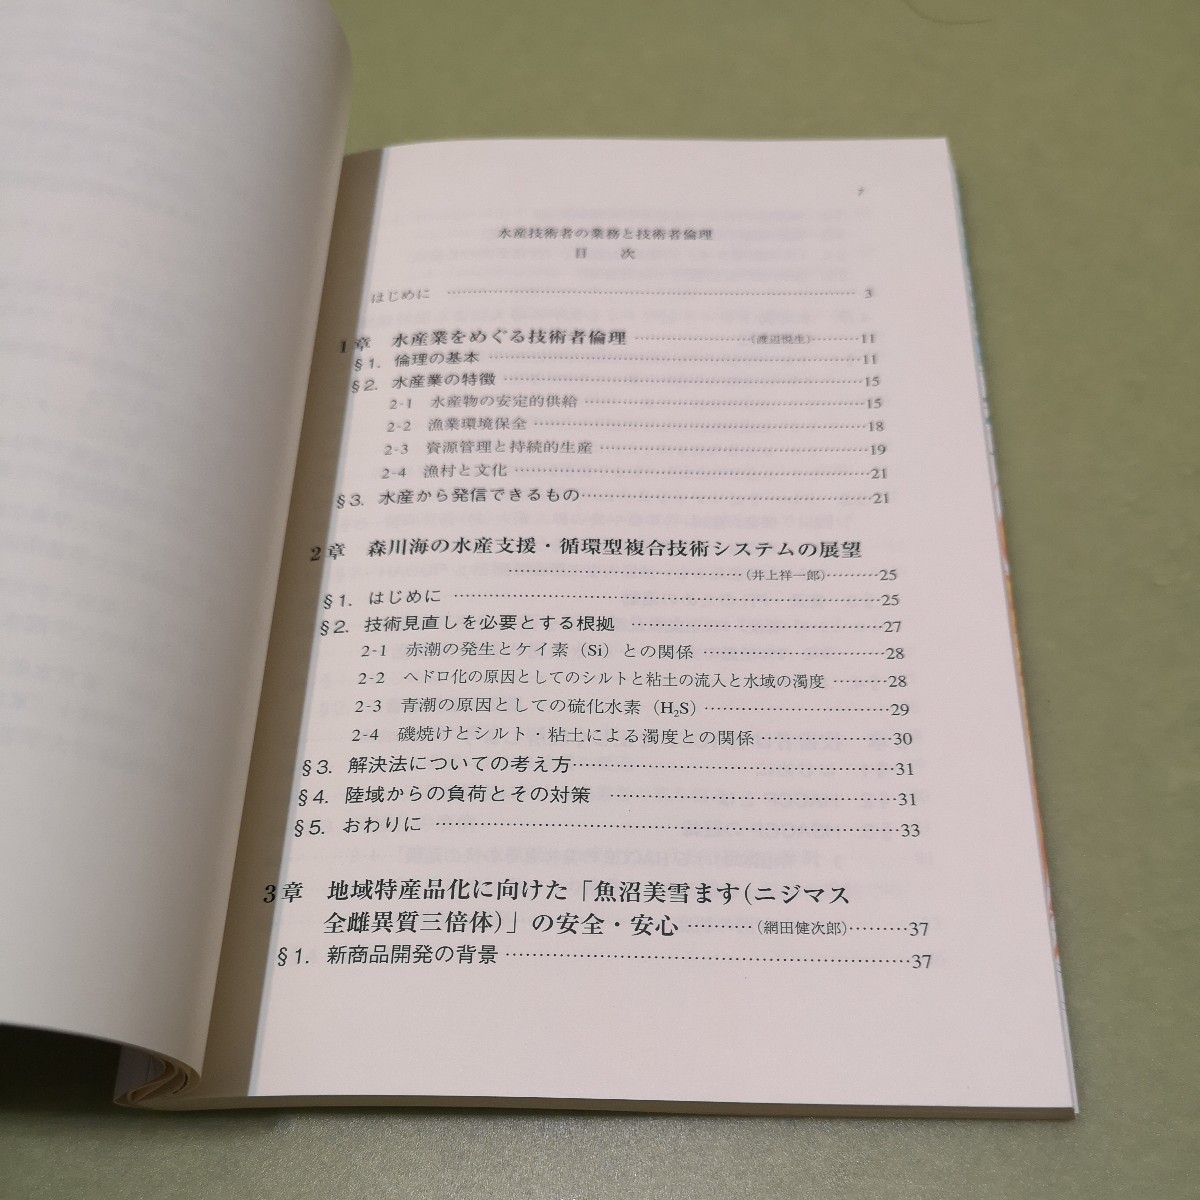 7
水産技術者の業務と技術者倫理
目　次
はじめに ………… 3
1章　水産業をめぐる技術者倫理 ………(渡辺悦生)………11
§1. 倫理の基本 …………11
§2. 水産業の特徴 …………15
2-1　水産物の安定的供給 …………15
2-2　漁業環境保全 …………18
2-3　資源管理と持続的生産 …………19
2-4　漁村と文化 …………21
§3. 水産から発信できるもの…………21
2章　森川海の水産支援・循環型複合技術システムの展望
…………(井上祥一郎)………25
§1. はじめに …………25
§2. 技術見直しを必要とする根拠 …………27
2-1　赤潮の発生とケイ素（Si）との関係 …………28
2-2　ヘドロ化の原因としてのシルトと粘土の流入と水域の濁度 ………28
2-3　青潮の原因としての硫化水素（H₂S）…………29
2-4　磯焼けとシルト・粘土による濁度との関係 …………30
§3. 解決法についての考え方…………31
§4. 陸域からの負荷とその対策 …………31
§5. おわりに …………33
3章　地域特産品化に向けた「魚沼美雪ます(ニジマス
全雌異質三倍体)」の安全・安心 ………(網田健次郎)………37
§1. 新商品開発の背景 …………37